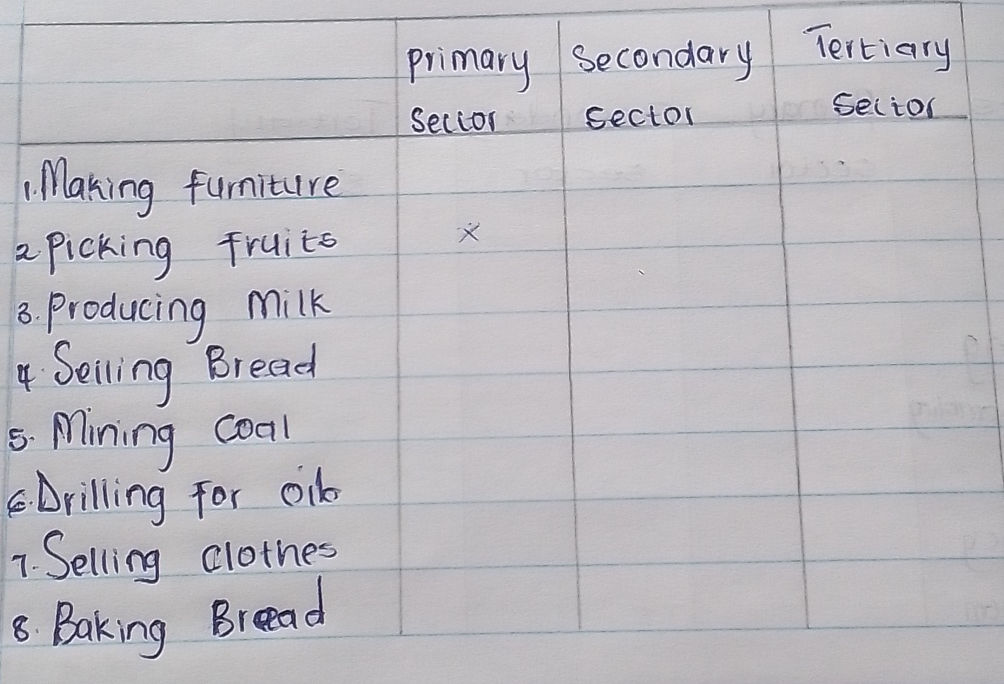 Primary Secondary Tertiary
Sector Sector Sector
1. Making furniture
2. Picking Fruits x
3. Producing Milk
4. Selling Bread
5. Mining Coal
6. Drilling For oil
7. Selling Clothes
8. Baking Bread